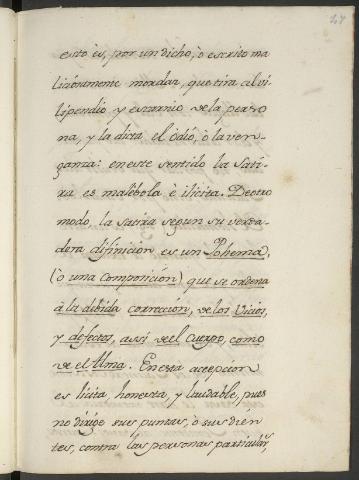 47
esto ès, por un dicho, ò escrito ma
liciosamente mordaz, que tira al vi
lipendio y escarnio de la perso
na, y la dicta el ódio, ò la ven-
ganza: en este sentido la Sati-
ra es malèbola è ilicita. De otro
modo la satira segun su verda-
dera difinicion es un Pohema,
(ò una composicion) que se ordena
à la debida correccion, de los Vicios,
y defectos, assi de el Cuerpo, como
de el Alma. En esta acepcion
es licita, honesta, y laudable, pues
no dirige sus puntas, ò sus dien
tes, contra las personas particular